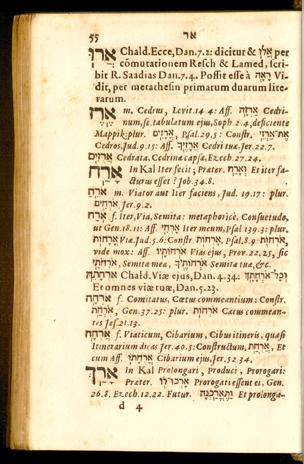 55 אר
אֲרוּ Chald. Ecce, Dan. 7. 2: dicitur & אֲלוּ per
cōmutationem Resch & Lamed, scri
bit R. Saadias Dan. 7. 4. Possit esse à רָאָה Vi
dit, per metathesin primarum duarum lite-
rarum.
אֶרֶז m. Cedrus, Levit. 14 4: Aff. אַרְזָהּ Cedri-
num, sc. tabulatum ejus, Soph. 2. 4, deficiente
Mappik: plur. אֲרָזִים, Psal. 29, 5: Constr. אַרְזֵי
Cedros, Jud. 9. 15: Aff. Cedri tuæ Jer. 22. 7.
אֲרֻזִים Cedrata, Cedrina capsa, Ezech. 27. 24.
אָרַח In Kal Iter fecit; Præter. וְאָרַח Et iter fa-
cturus esset? Job. 34. 8.
אֹרֵחַ m. Viator aut Iter faciens, Jud. 19. 17: plur.
אֹרְחִים Jer. 9. 2.
אֹרַח f. Iter, Via, Semita: metaphoricè. Consuetudo,
ut Gen. 18. 11: Aff. אָרְחִי Iter meum, Psal 139. 3: plur.
אֳרָחוֹת Viæ, Jud. 5. 6: Constr. אָרְחוֹת, Psal. 8. 9
vide mox: Aff. אֹרְחֹתָיו Vias ejus, Prov. 22. 25, sic
Semitæ meæ, אֹרְחוֹתֶיךָ Semitæ tuæ, &c.
אָרְחָתֵהּ Chald. Viæ ejus, Dan. 4. 34: וְכָל־אֹרְחָתָךְ
Et omnes viæ tuæ, Dan. 5. 23.
אֹרְחָה f. Comitatus, Cœtus commeantium: Constr.
אֹרְחַת, Gen. 37. 25: plur. אֹרְחוֹת Cœtus commean-
tes Jes. 21. 13.
אֲרֻחָה f. Viaticum, Cibarium, Cibus itineris, quasi
Itinerarium dicas Jer. 40. 5: Constructum, אֲרֻחַת, Et
cum Aff. אֲרֻחָתוֹ Cibarium ejus, Jer. 52 34.
אָרַךְ In Kal Prolongari, Produci, Prorogari:
Præter. אָרְכוּ Prorogati essent ei, Gen.
26. 8. Ezech. 12. 22. Futur. וַתֶּאֱרַכְנָה Et prolonga-
d 4